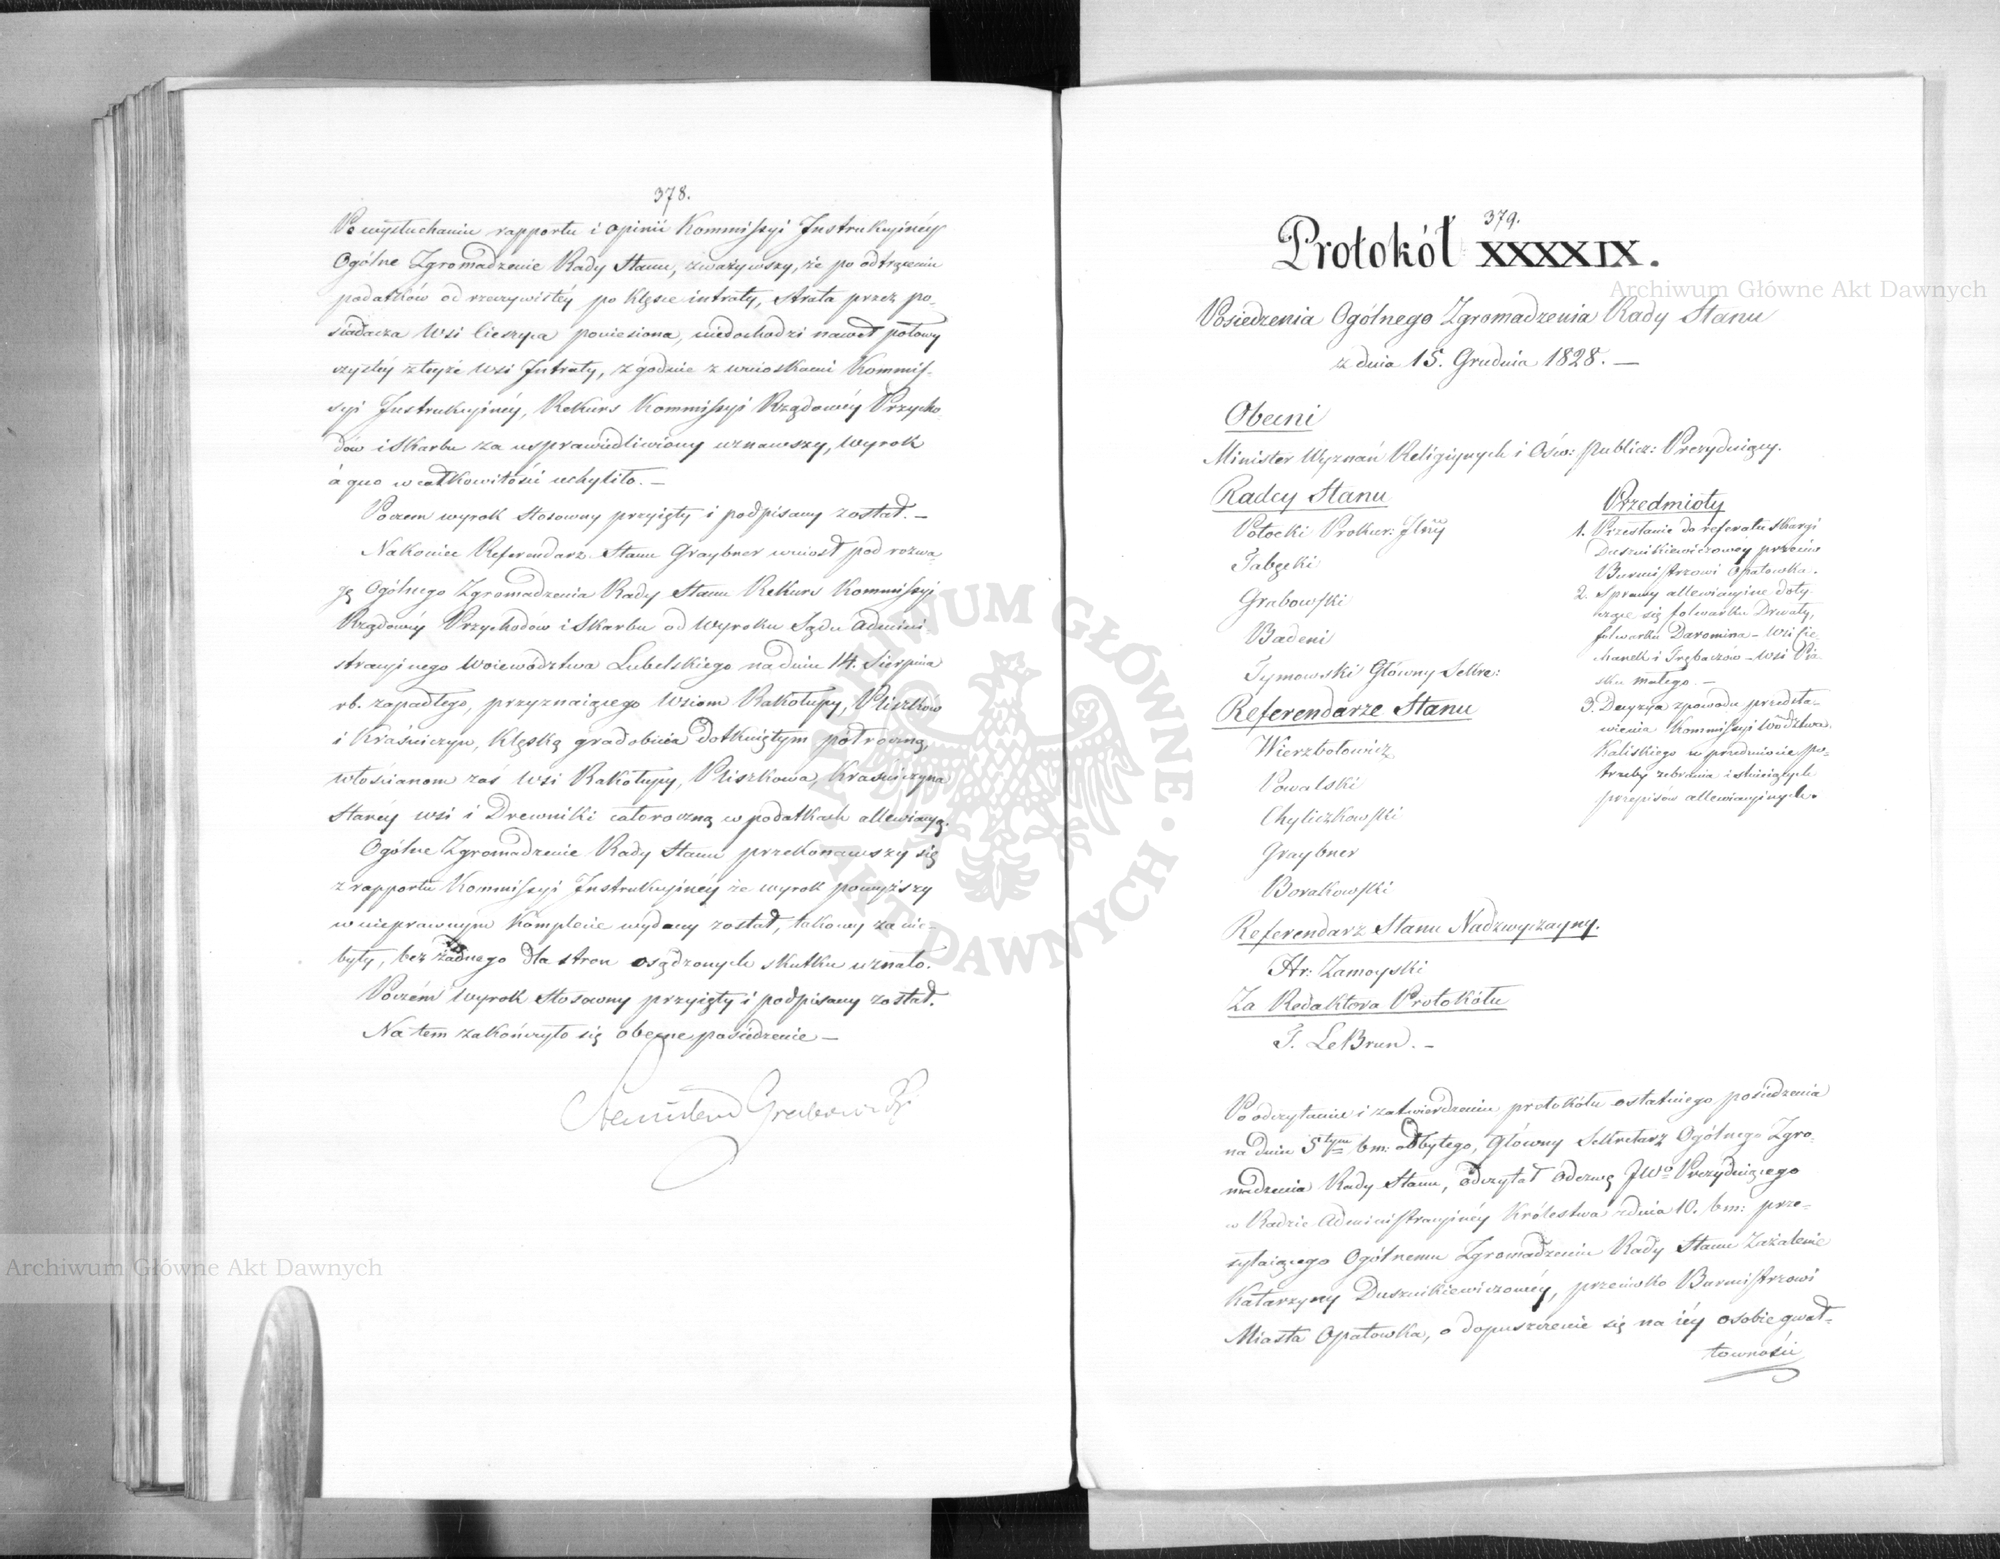 378.
Po wysłuchaniu rapportu i opinii Kommissyi Instrukcyinéy
Ogólne Zgromadzenie Rady Stanu, zważywszy, że po odtrąceniu
podatków od rzeczywistéy po klęsce intraty, strata przez po-
siadacza Wsi Cieszyca poniesiona, niedochodzi nawet połowy
czystéy z teyże Wsi Intraty, zgodnie z wnioskami Kommis-
syi Instrukcyinéy, Rekurs Kommissyi Rządowéy Przycho-
dów i Skarbu za usprawiedliwiony uznawszy, wyrok
à quo w całkowitości uchyliło. —
Poczem wyrok stosowny przyięty i podpisany został. —
Nakoniec Referendarz Stanu Graybner wniósł pod rozwa-
gę Ogólnego Zgromadzenia Rady Stanu Rekurs Kommissyi
Rządowéy Przychodów i Skarbu od Wyroku Sądu Admini-
stracyinego Woiewództwa Lubelskiego na dniu 14. Sierpnia
rb. zapadłego, przyznaiącego Wsiom Rakołupy, Pliszków
i Kraśniczyn, klęską gradobicia dotkniętym półroczną,
włościanom zaś Wsi Rakołupy, Pliszkowa, Kraśniczyna
Staréy wsi i Drewniki całoroczną w podatkach allewiacyą.
Ogólne Zgromadzenie Rady Stanu przekonawszy się
z rapportu Kommissyi Instrukcyinéy że wyrok powyższy
w nieprawnym komplecie wydany został, takowy za nie-
były, bez żadnego dla stron osądzonych skutku uznało.
Poczém wyrok stosowny przyięty i podpisany został.
Na tem zakończyło się obecne posiedzenie —
Stanisław Grabowski
379.
Protokół XXXXIX.
Posiedzenia Ogólnego Zgromadzenia Rady Stanu
z dnia 15. Grudnia 1828. —
Obecni
Minister Wyznań Religiynych i Ośw: Publicz: Prezyduiący.
Radcy Stanu
Potocki Prokur: Jlny
Tabęcki
Grabowski
Badeni
Tymowski Główny Sekre:
Referendarze Stanu
Wierzbołowicz
Powalski
Chyliczkowski
Graybner
Borakowski
Referendarz Stanu Nadzwyczayny.
Hr: Zamoyski
Za Redaktora Protokółu
T. LeBrun. —
Przedmioty
1. Przesłanie do referatu skargi
Dusznikiewiczowéy przeciw
Burmistrzowi Opatowka.
2. Sprawy allewiacyine doty-
czące się folwarku Drwały,
folwarku Daromina — Wsi Sie-
Manek i Trębaczów — Wsi Pia-
sku małego. —
3. Decyzya z powodu przedsta-
wienia Kommissyi Wództwa
Kaliskiego w przedmiocie po-
trzeby zebrania istnieiących
przepisów allewiacyinych.
Po odczytaniu i zatwierdzeniu protokółu ostatniego posiedzenia
na dniu 5tym bm: odbytego, Główny Sekretarz Ogólnego Zgro-
madzenia Rady Stanu, odczytał odezwę JWo Prezyduiącego
w Radzie Administracyinéy Królestwa z dnia 10. bm: prze-
syłaiącego Ogólnemu Zgromadzeniu Rady Stanu Zażalenie
Katarzyny Dusznikiewiczowéy, przeciwko Burmistrzowi
Miasta Opatowka, o dopuszczenie się na iéy osobie gwał-
towności
Archiwum Główne Akt Dawnych
Archiwum Główne Akt Dawnych
ARCHIWUM GŁÓWNE · AKT DAWNYCH ·